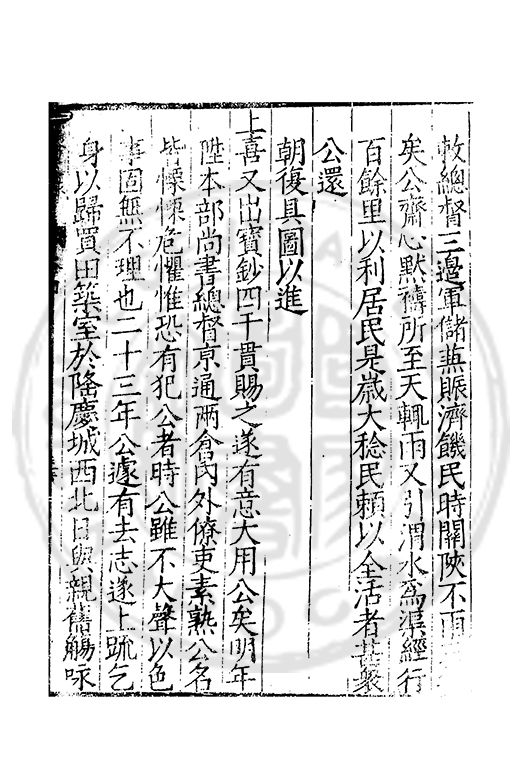 敕總督三邉軍儲兼賑濟饑民時關陝不雨
矣公齋心默禱所至天輒雨又引渭水為渠經行
百餘里以利居民是歲大稔民頼以全活者甚衆
公還
朝復具圖以進
上喜又出寳鈔四千貫賜之遂有意大用公矣明年
陞本部尚書總督京通兩倉内外僚吏素熟公名
皆慄慄危懼惟恐有犯公者時公雖不大聲以色
事固無不理也二十三年公遽有去志遂上疏乞
身以歸買田築室於隆慶城西北日與親舊觴咏